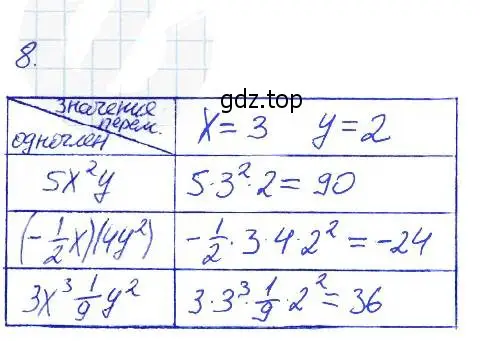 8.
gdz.top
значения
перем.
одночлен
x = 3 y = 2
5x²y
5·3²·2 = 90
(-1/2x)(4y²)
-1/2·3·4·2² = -24
3x³ 1/9 y²
3·3³·1/9·2² = 36